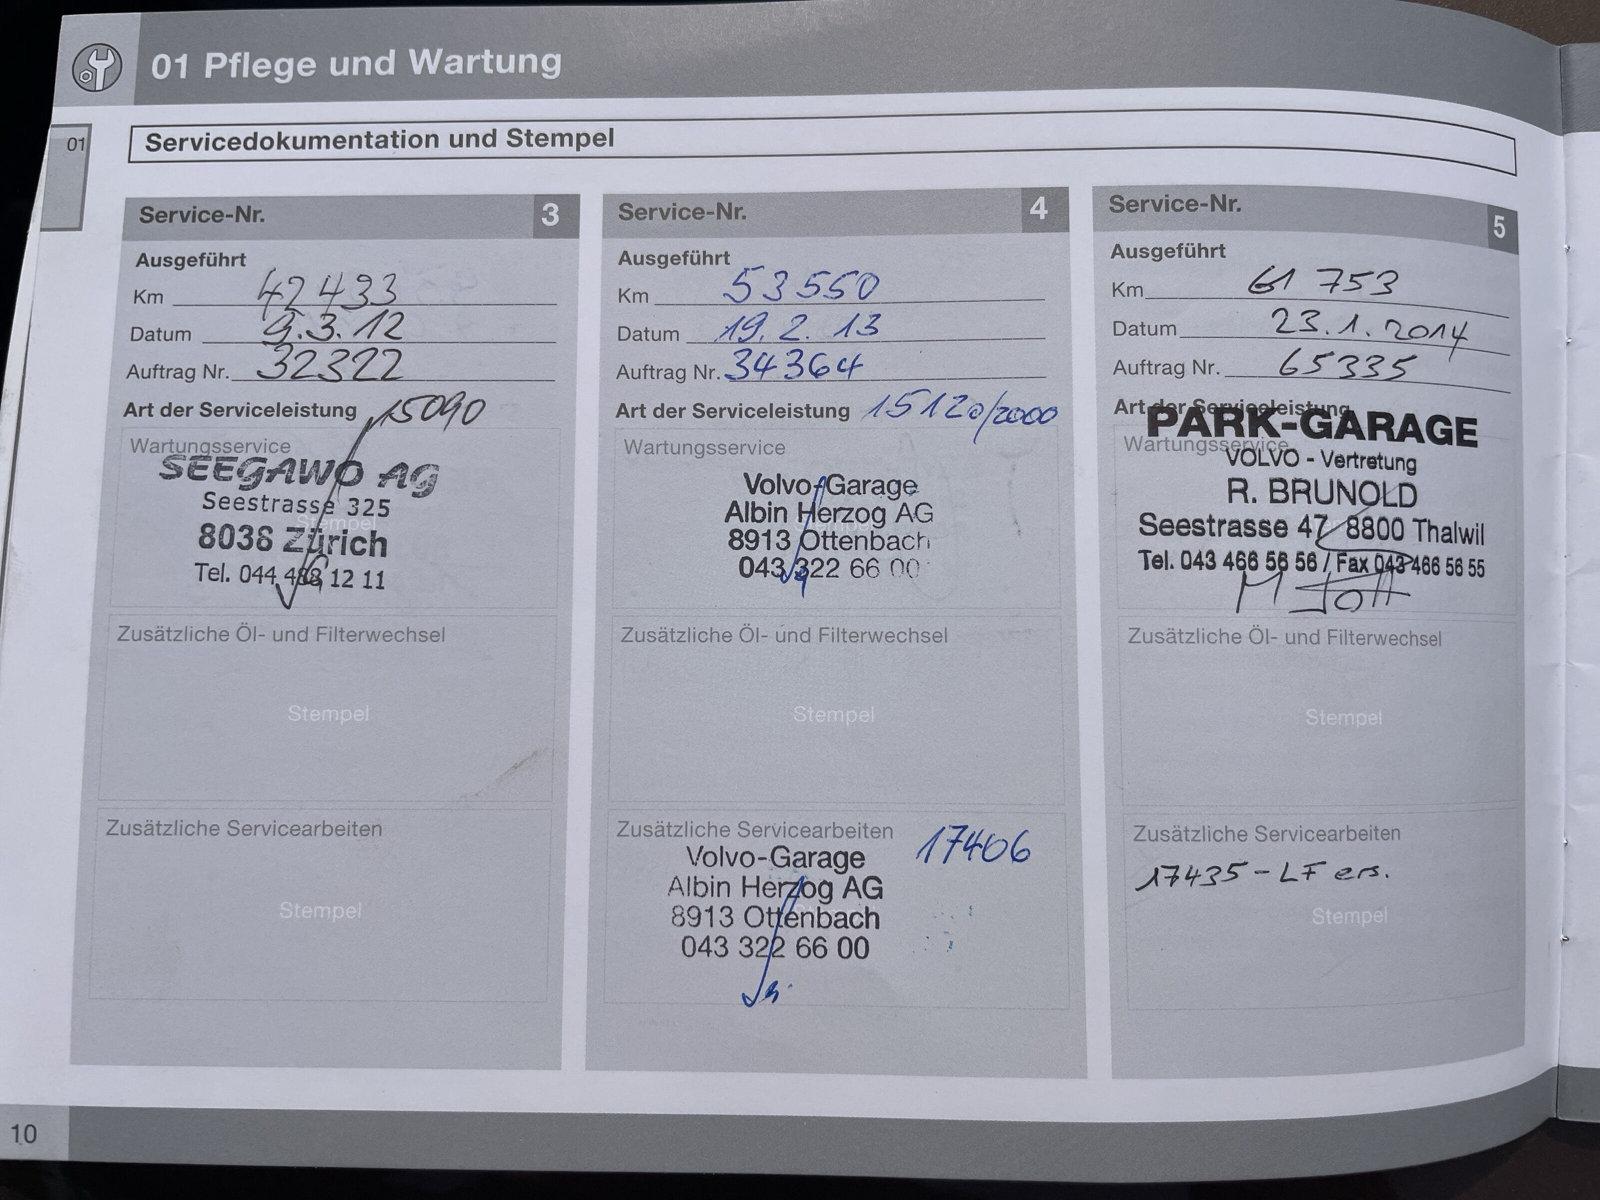 01 Pflege und Wartung
01
Servicedokumentation und Stempel
Service-Nr. 3
Ausgeführt
Km 42 433
Datum 9.3.12
Auftrag Nr. 32322
Art der Serviceleistung 15090
Wartungsservice
SEEGAWO AG
Seestrasse 325
Stempel
8038 Zürich
Tel. 044 488 12 11
Zusätzliche Öl- und Filterwechsel
Stempel
Zusätzliche Servicearbeiten
Stempel
Service-Nr. 4
Ausgeführt
Km 53 550
Datum 19.2.13
Auftrag Nr. 34364
Art der Serviceleistung 15120/2000
Wartungsservice
Volvo-Garage
Albin Herzog AG
8913 Ottenbach
043 322 66 00
Zusätzliche Öl- und Filterwechsel
Stempel
Zusätzliche Servicearbeiten 17406
Volvo-Garage
Albin Herzog AG
8913 Ottenbach
043 322 66 00
Service-Nr. 5
Ausgeführt
Km 61 753
Datum 23.1.2014
Auftrag Nr. 65335
Art der Serviceleistung
PARK-GARAGE
Wartungsservice
VOLVO - Vertretung
R. BRUNOLD
Seestrasse 47 8800 Thalwil
Tel. 043 466 56 56 / Fax 043 466 56 55
Zusätzliche Öl- und Filterwechsel
Stempel
Zusätzliche Servicearbeiten
17435 - LF ers.
Stempel
10